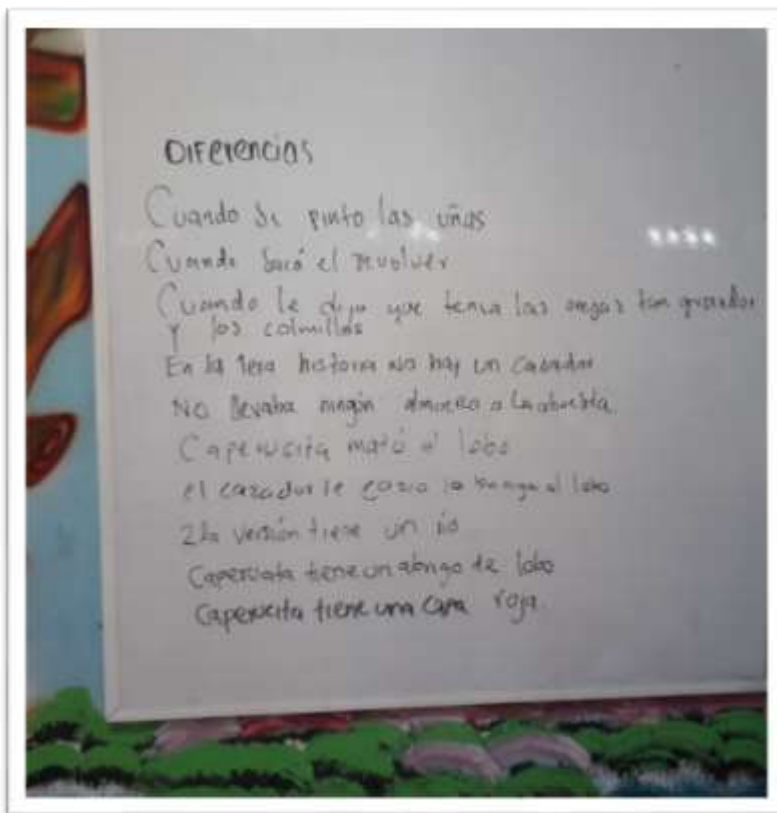 Diferencias
Cuando se pinto las uñas
Cuando sacó el revolver
Cuando le dijo que tenia las orejas tan grandes
y los colmillos
En la 1era historia no hay un casador
No llevaba ningún almuerzo a la abuelita
Caperucita mató al lobo
el cazador le cosio la al lobo
2da versión tiene un rio
Caperucita tiene un abrigo de lobo
Caperucita tiene una capa roja